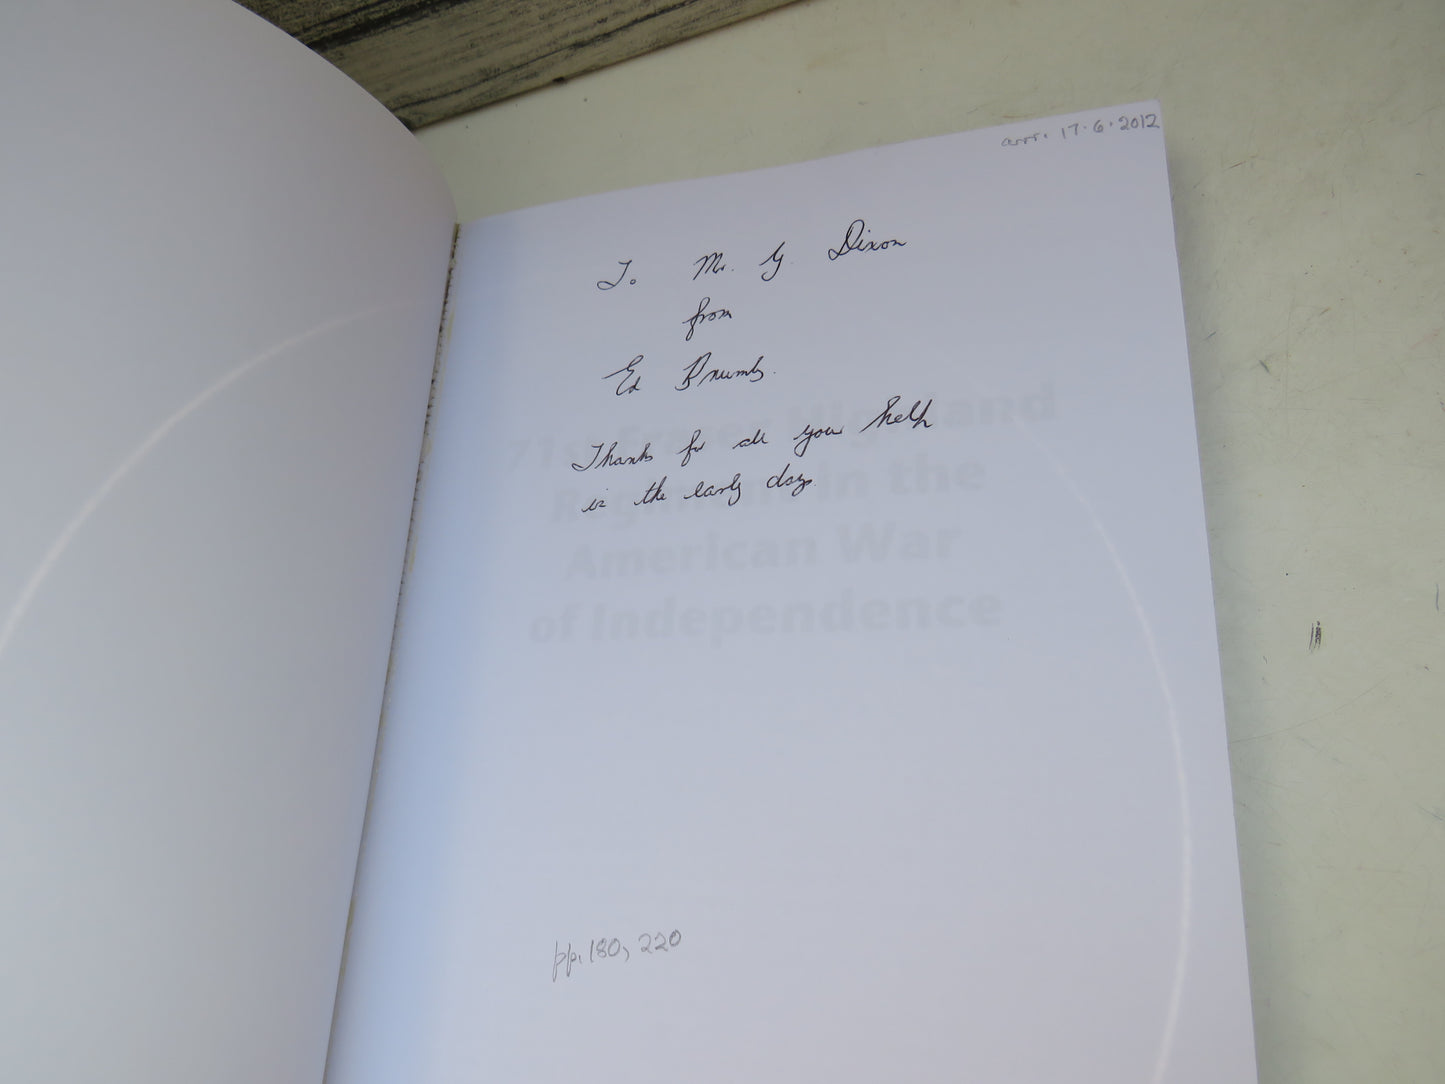 arr. 17.6.2012
To Mr. G. Dixon
from
Ed Brumby.
Thanks for all you help
in the early days.
71st Fraser Highland
Regiment in the
American War
of Independence
pp. 180, 220